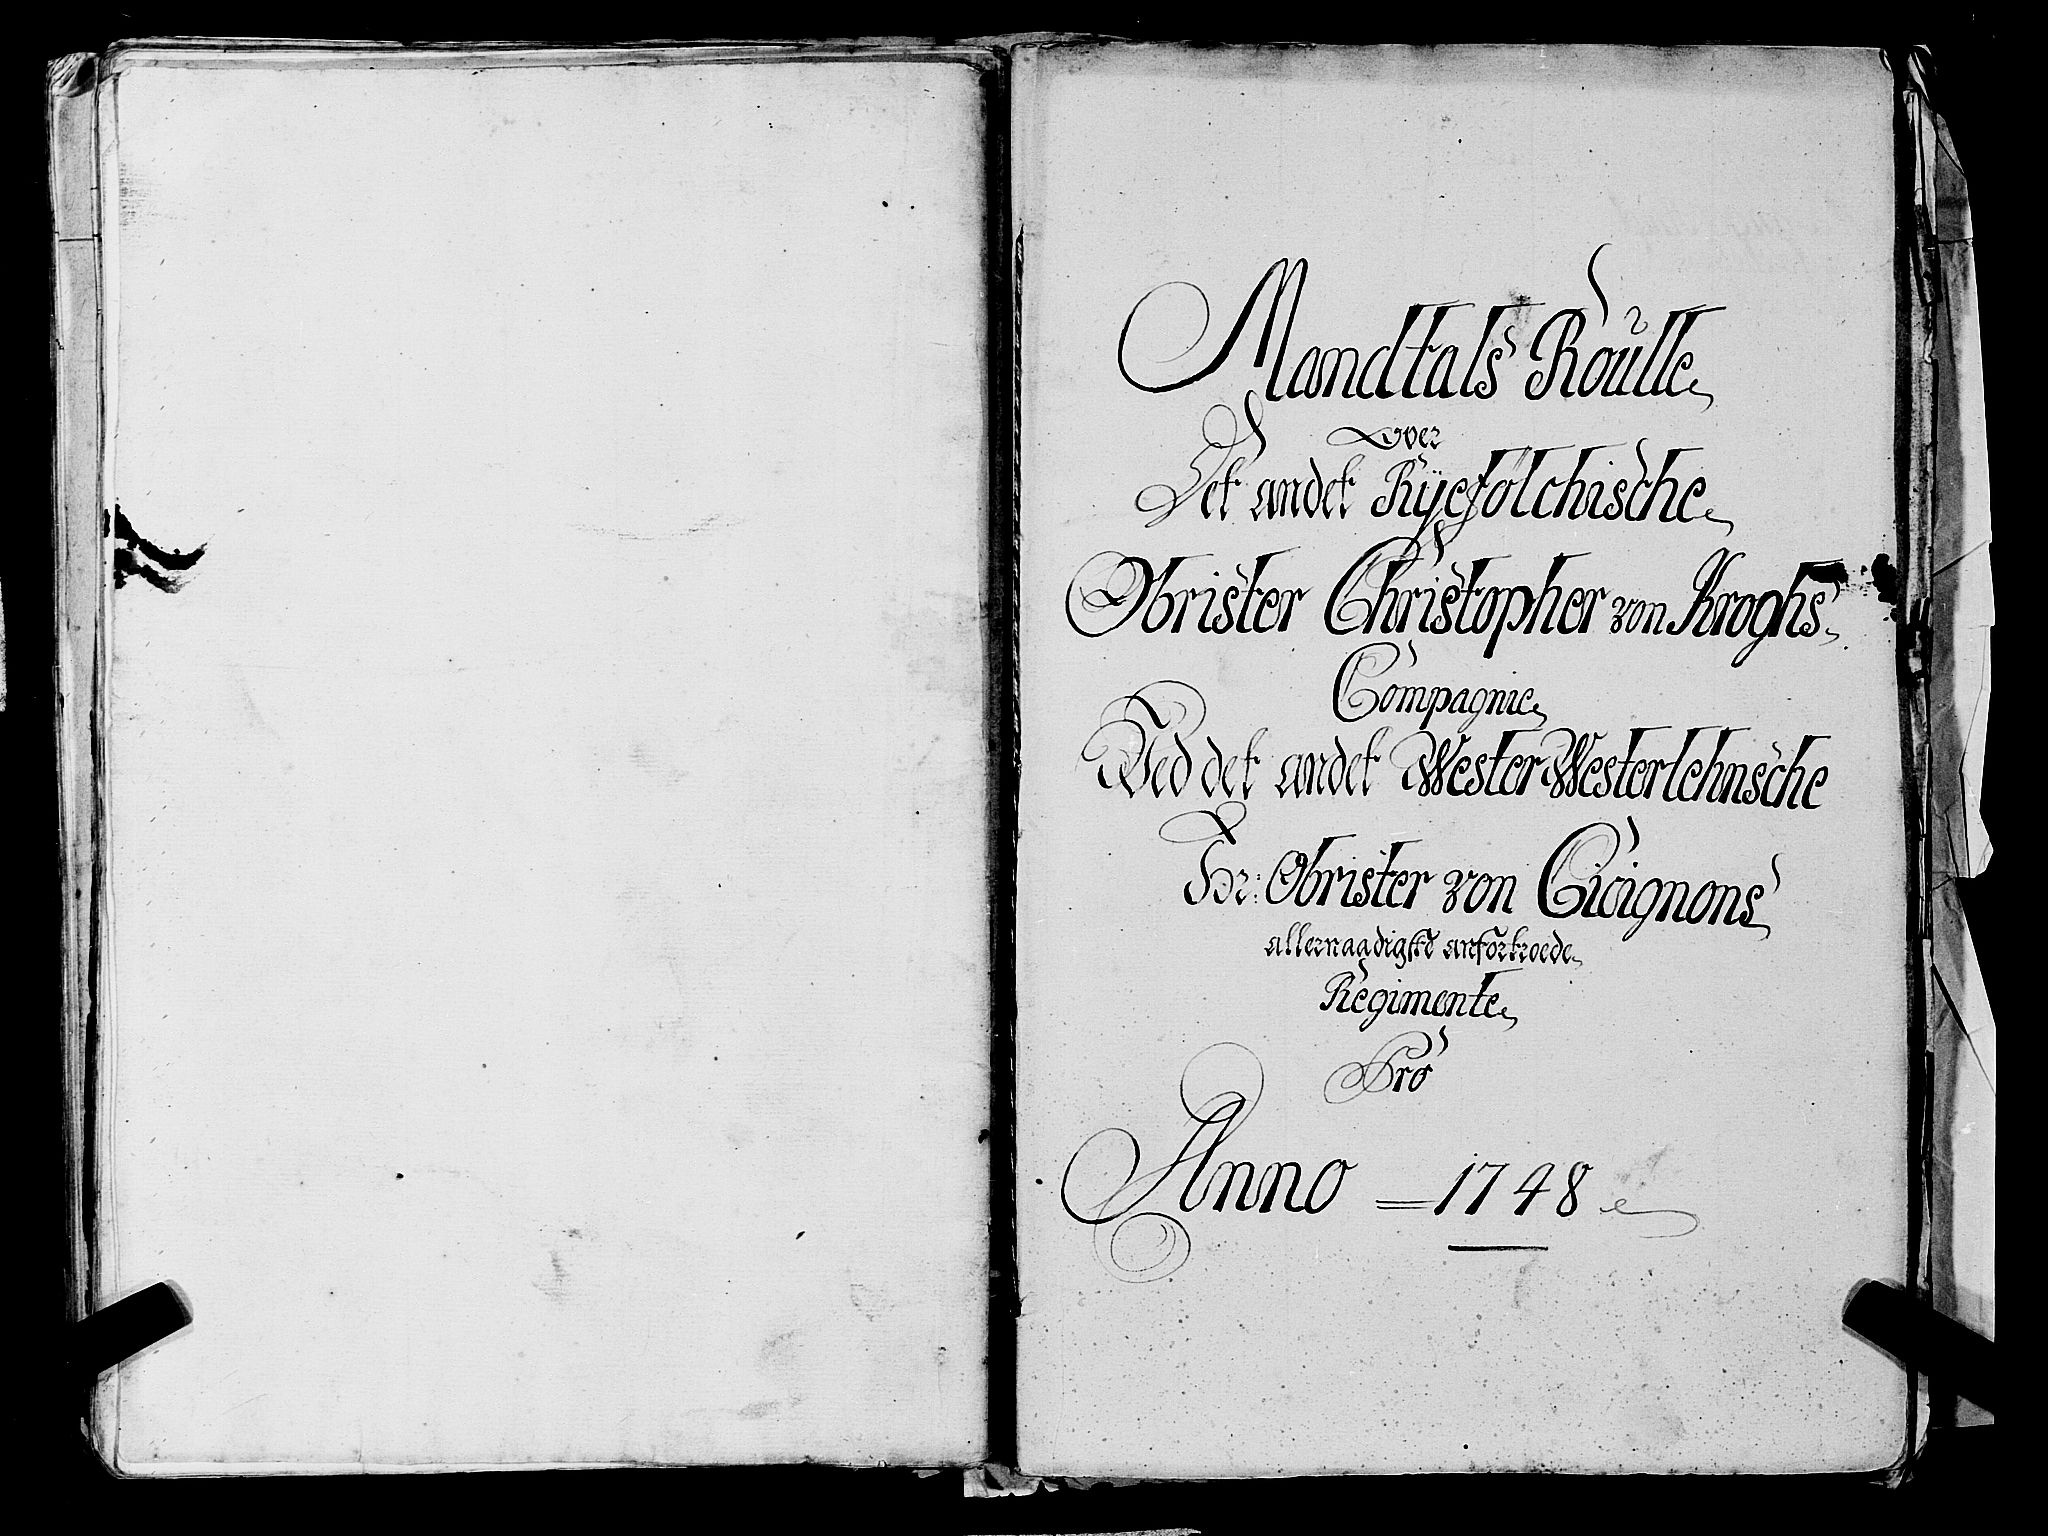 Mandtals Roulle
Over
Det andet Ryefölchische
Obrister Christopher von Kroghs
Compagnie
Ved det andet Wester Westerlehnsche
Hr: Obrister von Cicignons
allernaadigste anfortroede
Regimente
Pro
Anno = 1748